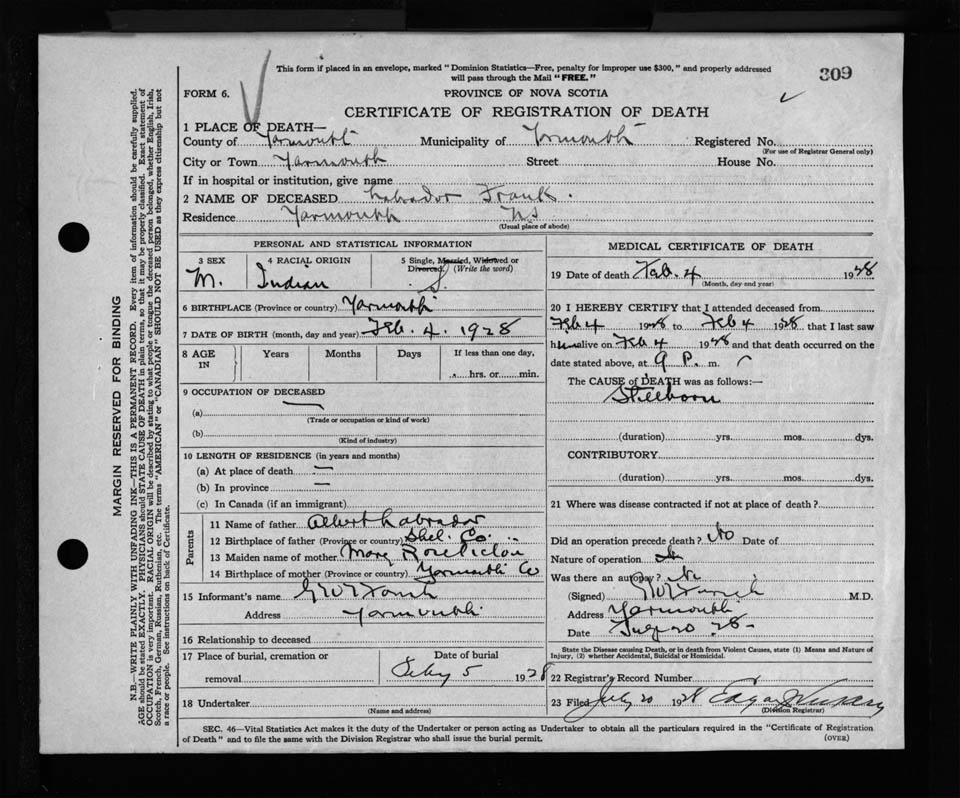 This form if placed in an envelope, marked "Dominion Statistics—Free, penalty for improper use $300," and properly addressed
will pass through the Mail "FREE."
309
FORM 6.
PROVINCE OF NOVA SCOTIA
CERTIFICATE OF REGISTRATION OF DEATH
1 PLACE OF DEATH—
County of Yarmouth Municipality of Yarmouth Registered No.
(For use of Registrar General only)
City or Town Yarmouth Street House No.
If in hospital or institution, give name
2 NAME OF DECEASED Labrador Frank.
Residence Yarmouth NS
(Usual place of abode)
PERSONAL AND STATISTICAL INFORMATION
3 SEX 4 RACIAL ORIGIN 5 Single, Married, Widowed or
Divorced. (Write the word)
M. Indian S.
6 BIRTHPLACE (Province or country) Yarmouth
7 DATE OF BIRTH (month, day and year) Feb. 4. 1928
8 AGE IN Years Months Days If less than one day,
hrs. or min.
9 OCCUPATION OF DECEASED
(a) —
(Trade or occupation or kind of work)
(b)
(Kind of industry)
10 LENGTH OF RESIDENCE (in years and months)
(a) At place of death —
(b) In province —
(c) In Canada (if an immigrant)
Parents
11 Name of father Albert Labrador
12 Birthplace of father (Province or country) Shel. Co.
13 Maiden name of mother Mary Rose
14 Birthplace of mother (Province or country) Yarmouth Co
15 Informant's name
Address Yarmouth.
16 Relationship to deceased
17 Place of burial, cremation or Date of burial
removal Feby 5 1928
18 Undertaker
(Name and address)
MEDICAL CERTIFICATE OF DEATH
19 Date of death Feb. 4 1928
(Month, day and year)
20 I HEREBY CERTIFY that I attended deceased from
Feb 4 1928 to Feb 4 1928 that I last saw
him alive on Feb 4 1928 and that death occurred on the
date stated above, at 9 P. m.
The CAUSE OF DEATH was as follows:—
Stillborn
(duration) yrs. mos. dys.
CONTRIBUTORY
(duration) yrs. mos. dys.
21 Where was disease contracted if not at place of death?
Did an operation precede death? No Date of
Nature of operation
Was there an autopsy? No
(Signed) M.D.
Address Yarmouth
Date July 20 28
State the Disease causing Death, or in death from Violent Causes, state (1) Means and Nature of
Injury, (2) whether Accidental, Suicidal or Homicidal.
22 Registrar's Record Number
23 Filed July 20 1928
(Division Registrar)
SEC. 46—Vital Statistics Act makes it the duty of the Undertaker or person acting as Undertaker to obtain all the particulars required in the "Certificate of Registration
of Death" and to file the same with the Division Registrar who shall issue the burial permit.
(OVER)
MARGIN RESERVED FOR BINDING
N.B.—WRITE PLAINLY WITH UNFADING INK—THIS IS A PERMANENT RECORD. Every item of information should be carefully supplied.
AGE should be stated EXACTLY. PHYSICIANS should STATE CAUSE OF DEATH in plain terms, so that it may be properly classified. Exact statement of
OCCUPATION is very important. RACIAL ORIGIN will be described by stating to what people or tongue the deceased person belonged, whether English, Irish,
Scotch, French, German, Russian, Ruthenian, etc. The terms "AMERICAN" or "CANADIAN" SHOULD NOT BE USED as they express citizenship but not
a race or people. See instructions on back of Certificate.